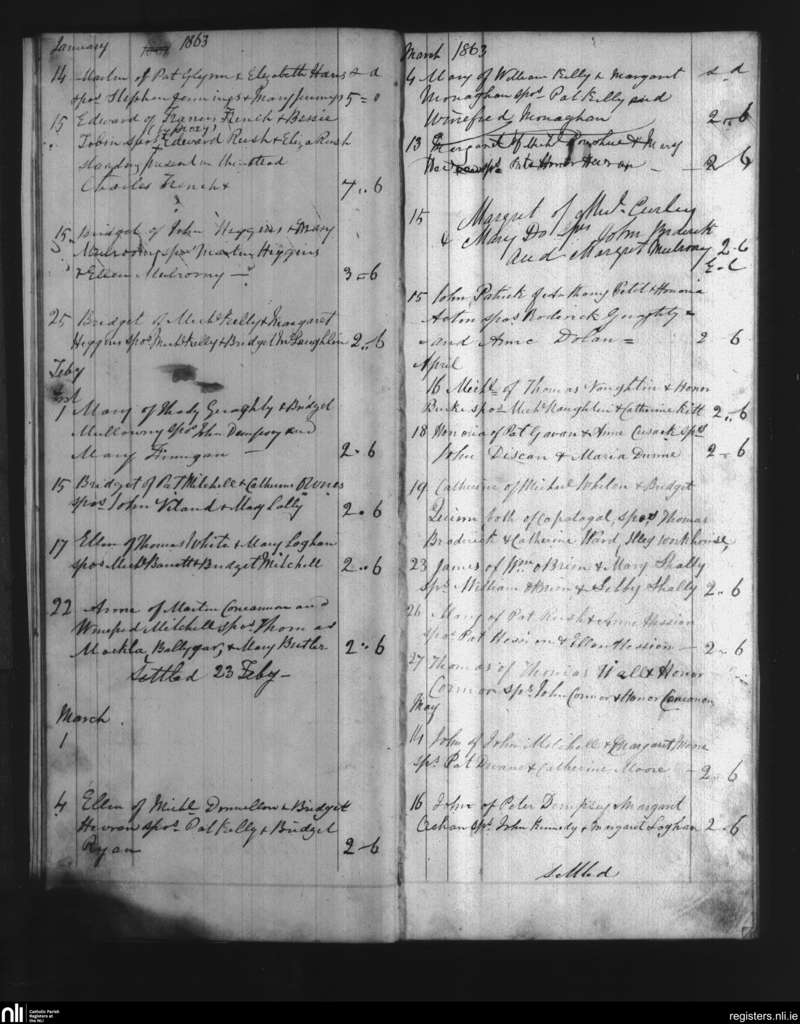 January 1863
14 Martin of Pat Glynn & Elizabeth s d
spos Stephen Jennings & Mary 5 = 0
15 Edward of Francis French & Bessie
Tobin spos Edward Rush & Eliza Rush
(by proxy)
present in the stead
Charles French 7 .. 6
15 Bridget of John Higgins & Mary
spos Martin Higgins
& Ellen Mulrony — 3 = 6
25 Bridget of Michl Kelly & Margaret
Higgins spos Michl Kelly & Bridget McLaughlin 2 .. 6
Feby
1 Mary of Thady Geraghty & Bridget
Mullowny spos John Dempsey and
Mary Finnegan — 2 - 6
15 Bridget of Pat Mitchell & Catherine
spos John & Mary Lally 2 . 6
17 Ellen of Thomas White & Mary Loghan
spos Michl Barrett & Bridget Mitchell 2 .. 6
22 Anne of Martin Concannon and
Winefred Mitchell spos Thomas
Mockla, Ballygar, & Mary Butler 2 .. 6
Settled 23 Feby —
March
1
4 Ellen of Michl Donnellon & Bridget
Hevran spos Pat Kelly & Bridget
Ryan 2 - 6
March 1863
4 Mary of William Kelly & Margaret s d
Monaghan spos Pat Kelly and
Winefred Monaghan 2 .. 6
13 Margaret of Michl Donohue & Mary
spos Honor — 2 6
15 Margret of Michl Curley
& Mary Do spos John Broderick
and Margret Mulrony 2 - 6
15 John Patrick of Anthony Petit & Honoria
Acton spos Roderick Geraghty =
and Anne Dolan = 2 6
April
16 Michl of Thomas Naughtin & Honor
Burke spos Michl Naughtin & Catherine Kilt 2 .. 6
18 Honoria of Pat Gavan & Anne Cusack spos
John & Maria Dunne 2 - 6
19 Catherine of Michael & Bridget
Quinn both of spos Thomas
Broderick & Catherine Ward, workhouse,
23 James of Wm OBrien & Mary Shally
spos William OBrien & Shally 2 .. 6
26 Mary of Pat Rush & Anne Hession
spos Pat Hession & Ellen Hession — 2 .. 6
27 Thomas of Thomas Wall & Honor
Connor spos John Connor & Honor Concannon
May
14 John of John Mitchell & Margaret
spos Pat & Catherine Moore — 2 .. 6
16 John of Peter Dempsey & Margaret
spos John Kennedy & Margaret Loghan 2 . 6
settled
nli
Catholic Parish
Registers at
the NLI
registers.nli.ie